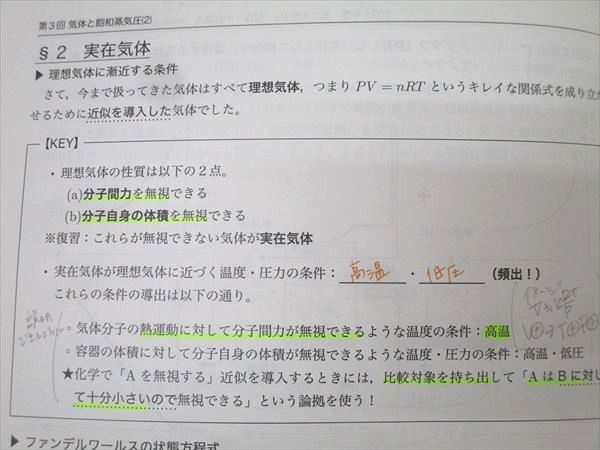 第3回 気体と飽和蒸気圧(2)
§2 実在気体
▶ 理想気体に漸近する条件
さて，今まで扱ってきた気体はすべて理想気体，つまり PV = nRT というキレイな関係式を成り立た
せるために近似を導入した気体でした。
【KEY】
・理想気体の性質は以下の2点。
(a)分子間力を無視できる
(b)分子自身の体積を無視できる
※復習：これらが無視できない気体が実在気体
・実在気体が理想気体に近づく温度・圧力の条件： 高温 ・ 低圧 （頻出！）
これらの条件の導出は以下の通り。
◦ 気体分子の熱運動に対して分子間力が無視できるような温度の条件：高温
◦ 容器の体積に対して分子自身の体積が無視できるような温度・圧力の条件：高温・低圧
★化学で「A を無視する」近似を導入するときには，比較対象を持ち出して「A は B に対し
て十分小さいので無視できる」という論拠を使う！
▶ ファンデルワールスの状態方程式